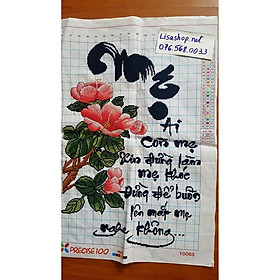 Lisashop.net
076.568.0033
Mẹ
Ai
Còn mẹ
Xin đừng làm
mẹ khóc
Đừng để buồn
lên mắt mẹ
nghe không...
PRECISE 100
10063